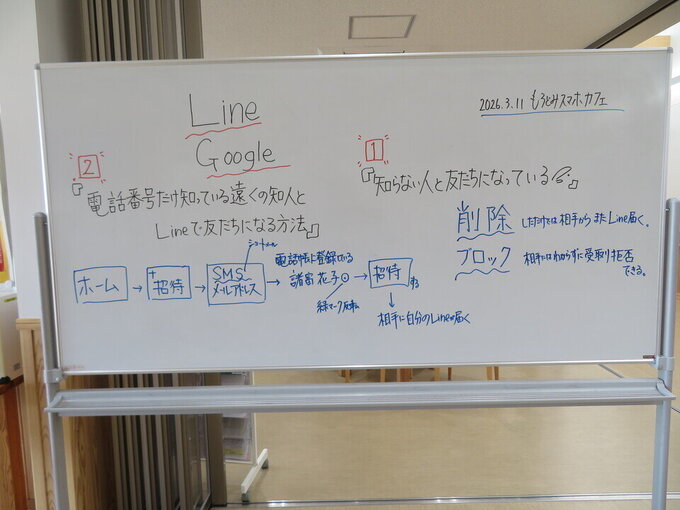 Line
Google
2026.3.11 もろどみスマホカフェ
1
『知らない人と友だちになっている』
削除 しただけでは相手からまたLine届く。
ブロック 相手にはわからずに受取り拒否
できる。
2
『電話番号だけ知っている遠くの知人と
Lineで友だちになる方法』
ショートメール
ホーム → +招待 → SMS
メールアドレス → 電話帳に登録している
諸富花子
緑マーク
→ 招待する
↓
相手に自分のLineが届く